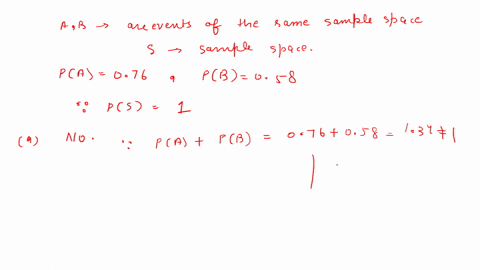 A,B → are events of the same sample space
S → sample space.
P(A) = 0.76 , P(B) = 0.58
∵ P(S) = 1
(a) NO. ∵ P(A) + P(B) = 0.76 + 0.58 = 1.34 ≠ 1